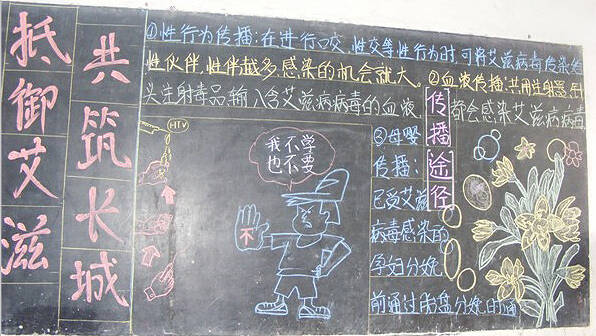 抵御艾滋
共筑长城
①性行为传播:在进行口交、性交等性行为时,可将艾滋病毒传染给
性伙伴,性伴越多,感染的机会就大。②血液传播:共用注射器、针
头注射毒品,输入含艾滋病病毒的血液,都会感染艾滋病病毒
传播途径
HIV
我不学
也不要
不
③母婴
传播:
已受艾滋
病毒感染的
孕妇分娩
前通过胎盘,分娩时通